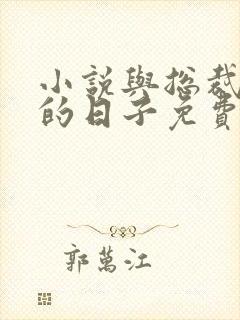 小說與總裁
的日子免費
郭萬江